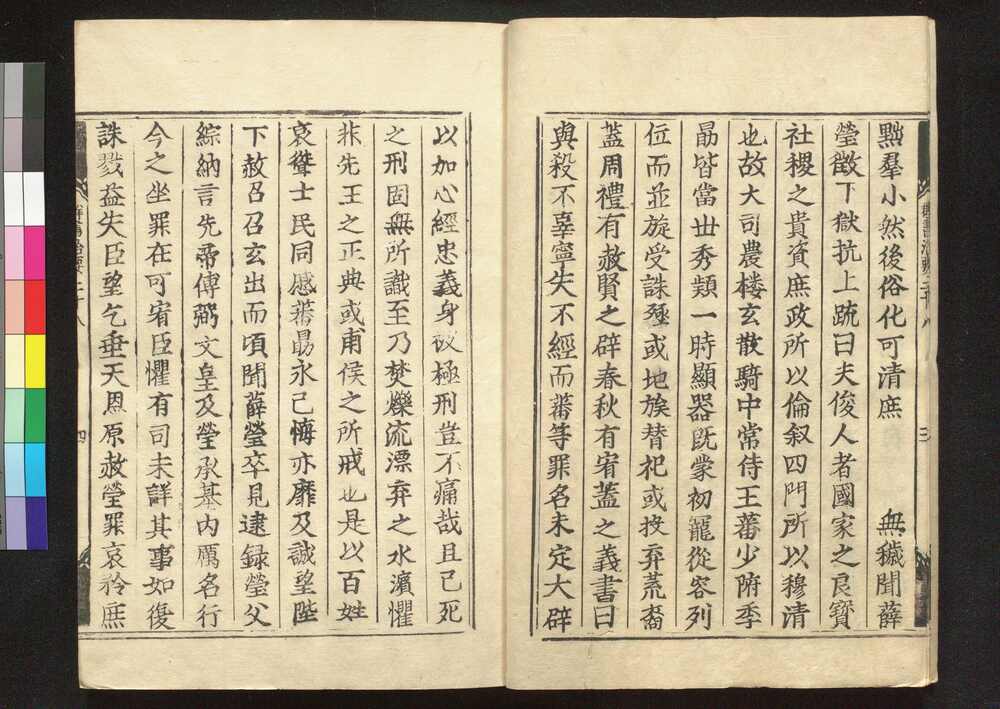 黜羣小然後俗化可清庶 無穢聞薛
瑩徵下獄抗上疏曰夫俊人者國家之良寶
社稷之貴資庶政所以倫叙四門所以穆清
也故大司農楼玄散騎中常侍王蕃少附李
勗皆當世秀穎一時顯器既蒙初寵從容列
位而並旋受誅殛或圮族替祀或投弃荒裔
蓋周禮有赦賢之辟春秋有宥蓋之義書曰
與殺不辜寧失不經而蕃等罪名未定大辟
以加心經忠義身被極刑豈不痛哉且已死
之刑固無所識至乃焚爍流漂弃之水濱懼
非先王之正典或甫侯之所戒也是以百姓
哀聳士民同慼蕃勗永已悔亦靡及誠望陛
下赦召召玄出而頃聞薛瑩卒見逮録瑩父
綜納言先帝傅弼文皇及瑩承基内厲名行
今之坐罪在可宥臣懼有司未詳其事如復
誅戮益失臣望乞垂天恩原赦瑩罪哀矜庶
群書治要二十八
三
群書治要二十八
四